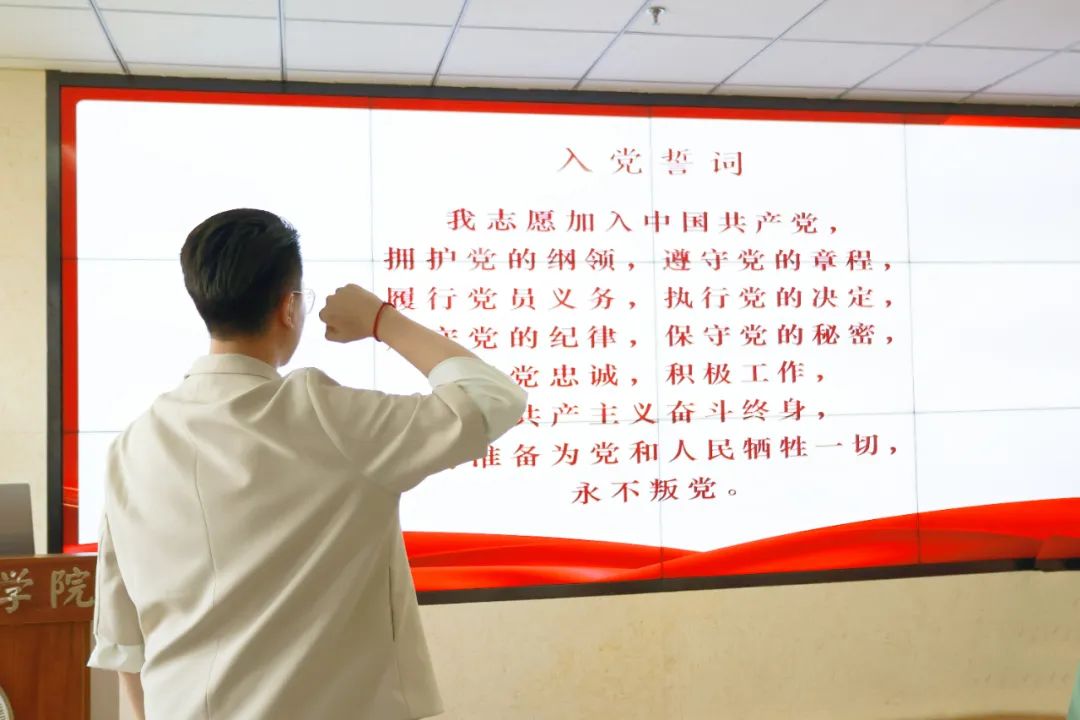 入党誓词
我志愿加入中国共产党，
拥护党的纲领，遵守党的章程，
履行党员义务，执行党的决定，
党的纪律，保守党的秘密，
党忠诚，积极工作，
共产主义奋斗终身，
准备为党和人民牺牲一切，
永不叛党。
学院